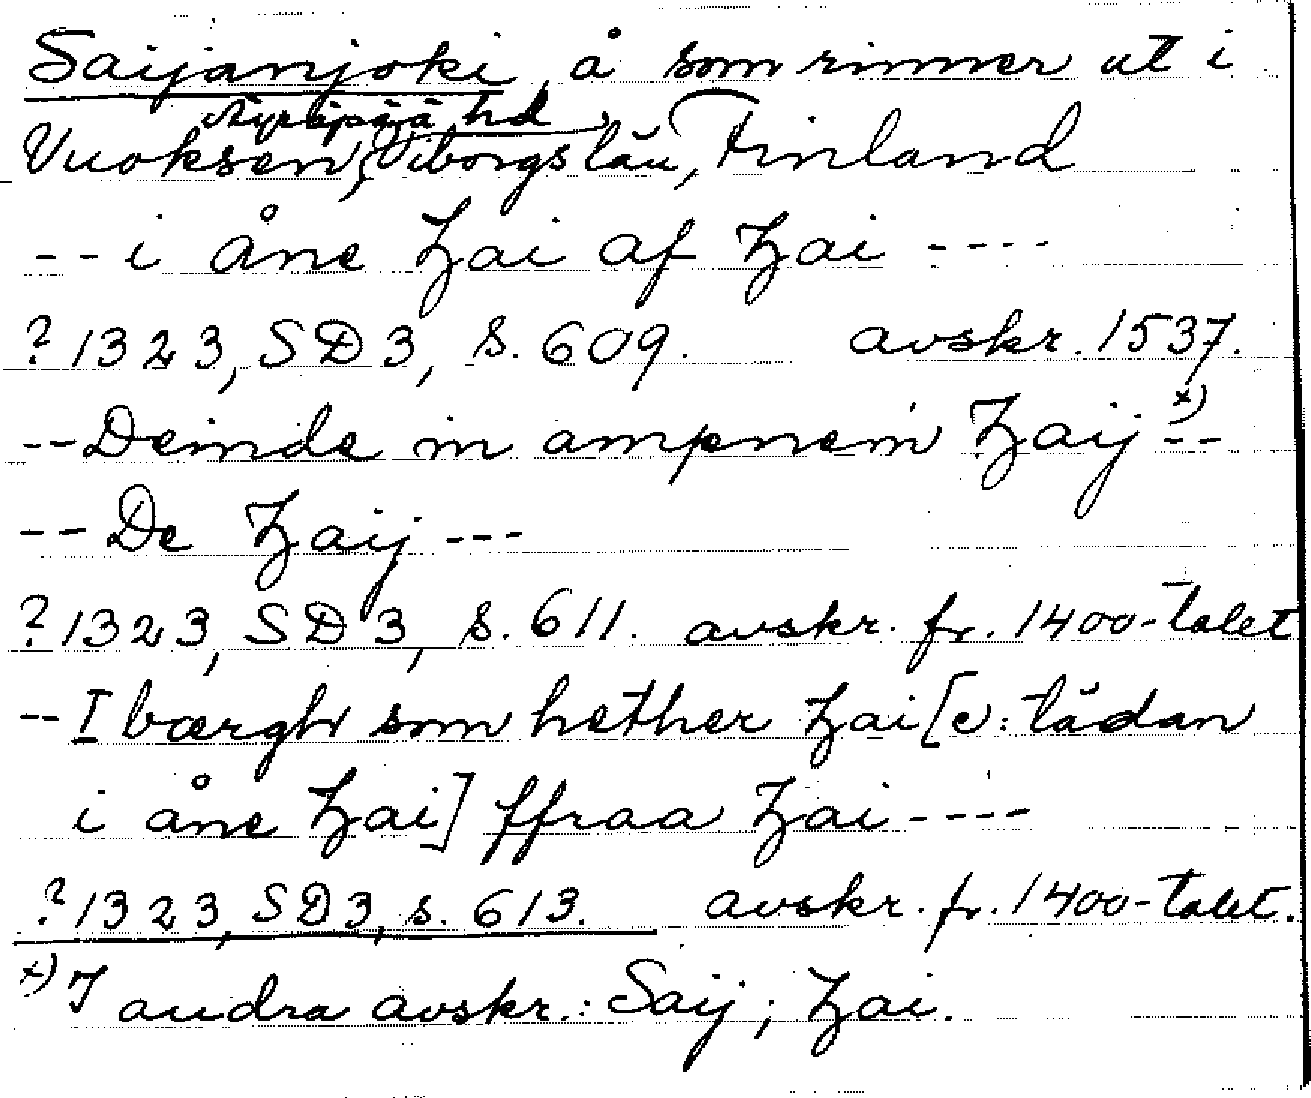 Saijanjoki, å som rinner ut i
Äyräpää hd,
Vuoksen, Viborgs län, Finland
-- i åne Zai af Zai ----
?1323, SD3, s. 609. avskr. 1537.
-- Deinde in ampnem Zaij x) --
-- De Zaij ---
?1323, SD3, s. 611. avskr. fr. 1400-talet
-- I bærgh som hether Zai [ɔ: lådan
i åne Zai] ffraa Zai ----
?1323, SD3, s. 613. avskr. fr. 1400-talet.
x) I andra avskr.: Saij; Zai.